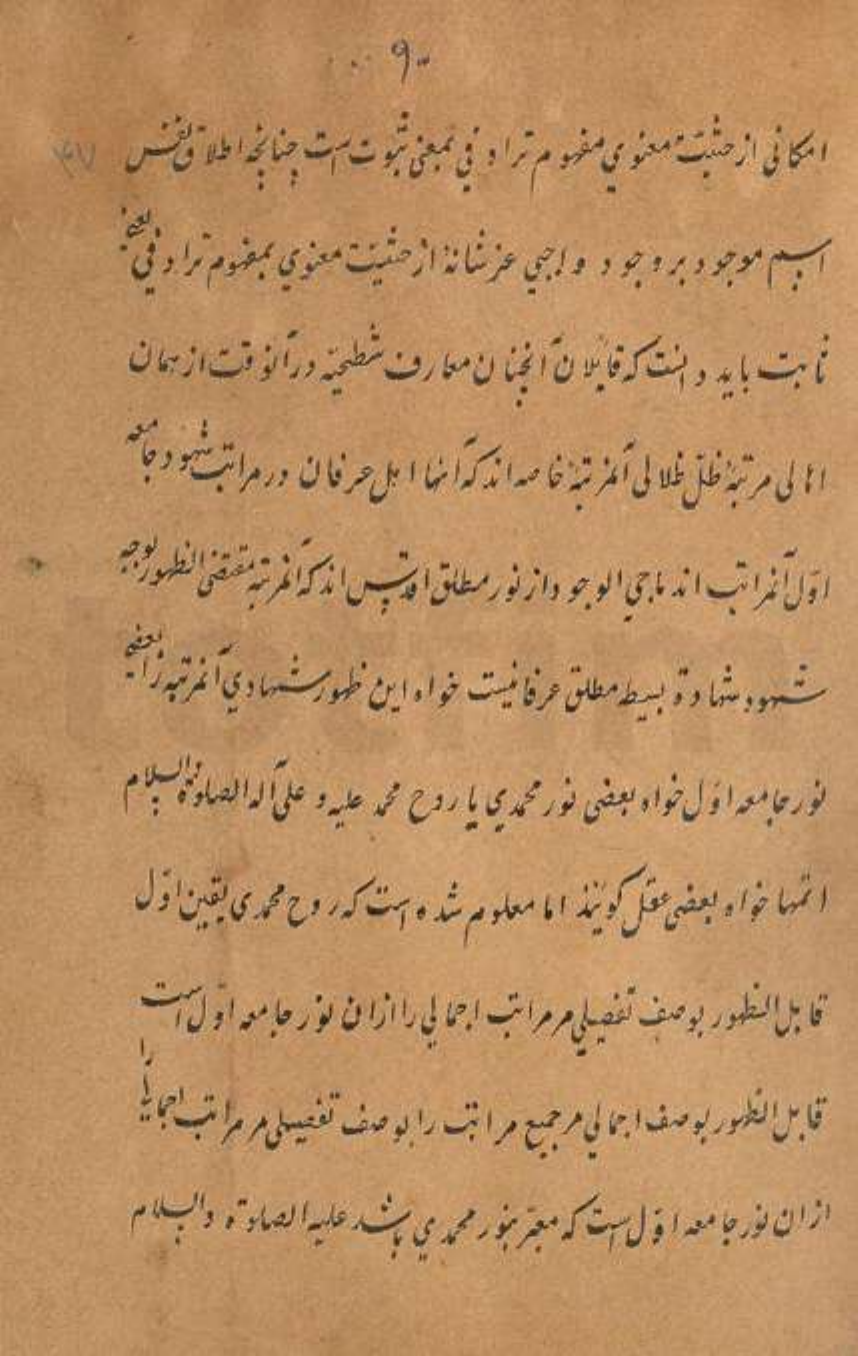 ۹۰
امکانی از حثیّت معنوی مفهوم ترادفی بمعنی ثبوت است چنانچه اطلاق نفس
اسم موجود بر وجود واجبی عز شانهٔ از حثیّت معنوی بمفهوم ترادفی یعنی
ثابت باید دانست که قایلان آنچنان معارف شطحیّه در آنوقت از همان
اهالی مرتبهٔ ظلّ ظلالی آنمرتبهٔ خاصه اند که آنها اهل عرفان در مراتب شهود جامعه
اوّل آنمراتب اند ماحی الوجود از نور مطلق اقدس اند که آنمرتبه مقتضی الظهور بوجه
شهود شهادة بسیط مطلق عرفانیست خواه این ظهور شهادی آنمرتبه را بعضی
نور جامعه اوّل خواه بعضی نور محمدی یا روح محمد علیه و علی آله الصلوة والسلام
اتمها خواه بعضی عقل کویند اما معلوم شده است که روح محمدی یقین اوّل
قابل الظهور بوصف تفصیلی مر مراتب اجمالی را ازان نور جامعه اوّل است
قابل الظهور بوصف اجمالی مر جمیع مراتب را بوصف تفصیلی مر مراتب اجمالی را
ازان نور جامعه اوّل است که معبّر بنور محمدی باشد علیه الصلوة والسلام